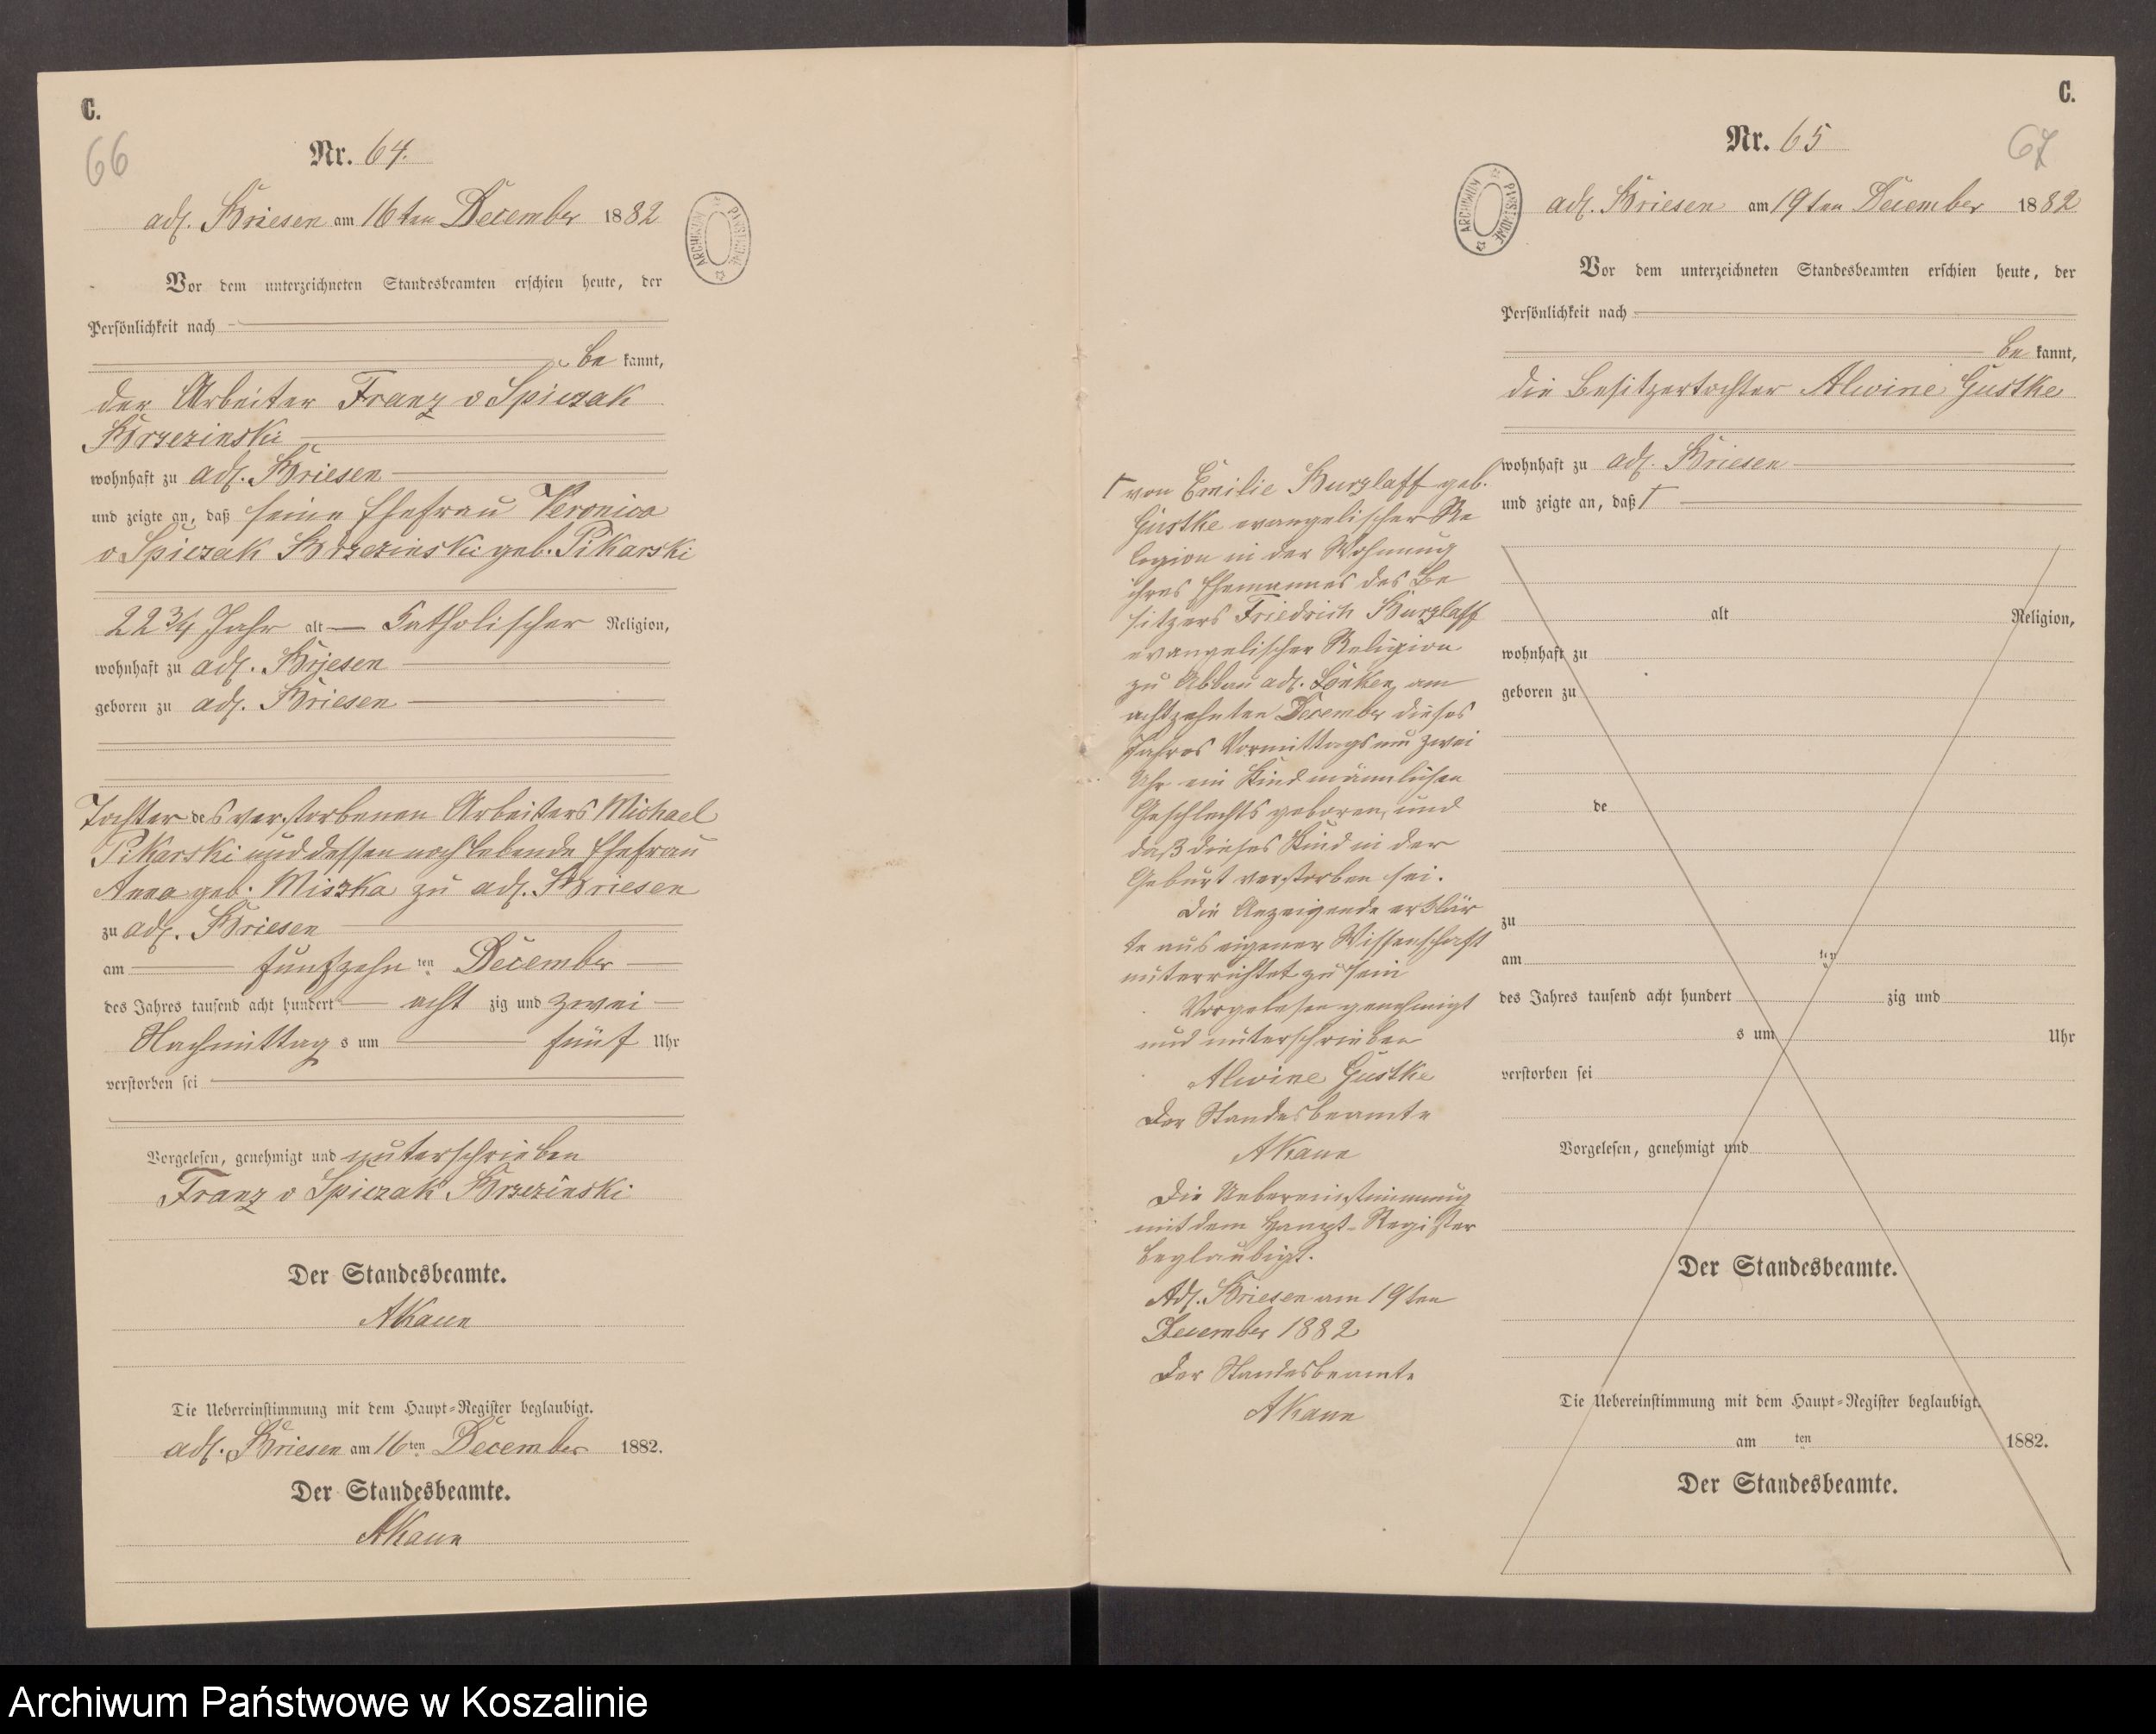 C.
66
Nr. 64.
adl. Briesen am 16ten December 1882
ARCHIWUM PAŃSTWOWE
Vor dem unterzeichneten Standesbeamten erschien heute, der
Persönlichkeit nach
be kannt,
der Arbeiter Franz v Spiczak
Brzezinski
wohnhaft zu adl. Briesen
und zeigte an, daß seine Ehefrau Veronica
v Spiczak Brzezinski geb. Pikarski
22 3/4 Jahr alt Catholischer Religion,
wohnhaft zu adl. Briesen
geboren zu adl. Briesen
Tochter des verstorbenen Arbeiters Michael
Pikarski und dessen noch lebende Ehefrau
Anna geb. Miszka zu adl. Briesen
zu adl. Briesen
am fünfzehn ten December
des Jahres tausend acht hundert acht zig und zwei
Nachmittag s um fünf Uhr
verstorben sei
Vorgelesen, genehmigt und unterschrieben
Franz v Spiczak Brzezinski
Der Standesbeamte.
AKaun
Die Uebereinstimmung mit dem Haupt-Register beglaubigt.
adl. Briesen am 16ten December 1882.
Der Standesbeamte.
AKaun
C.
67
Nr. 65
adl. Briesen am 19ten December 1882
ARCHIWUM PAŃSTWOWE
Vor dem unterzeichneten Standesbeamten erschien heute, der
Persönlichkeit nach
be kannt,
die Besitzertochter Alwine Gustke
wohnhaft zu adl. Briesen
und zeigte an, daß †
† von Emilie Burzlaff geb.
Gustke evangelischer Re
ligion in der Wohnung
ihres Ehemannes des Be
sitzers Friedrich Burzlaff
evangelischer Religion
zu Abbau adl. Lonken am
achtzehnten December dieses
Jahres Vormittags um zwei
Uhr ein Kind männlichen
Geschlechts geboren, und
daß dieses Kind in der
Geburt verstorben sei.
Die Anzeigende erklär
te aus eigener Wissenschaft
unterrichtet zu sein
Vorgelesen genehmigt
und unterschrieben
Alwine Gustke
Der Standesbeamte
AKaun
Die Uebereinstimmung
mit dem Haupt-Register
beglaubigt.
Adl. Briesen am 19ten
December 1882
Der Standesbeamte
AKaun
alt Religion,
wohnhaft zu
geboren zu
de
zu
am ten
des Jahres tausend acht hundert zig und
s um Uhr
verstorben sei
Vorgelesen, genehmigt und
Der Standesbeamte.
Die Uebereinstimmung mit dem Haupt-Register beglaubigt.
am ten 1882.
Der Standesbeamte.
Archiwum Państwowe w Koszalinie